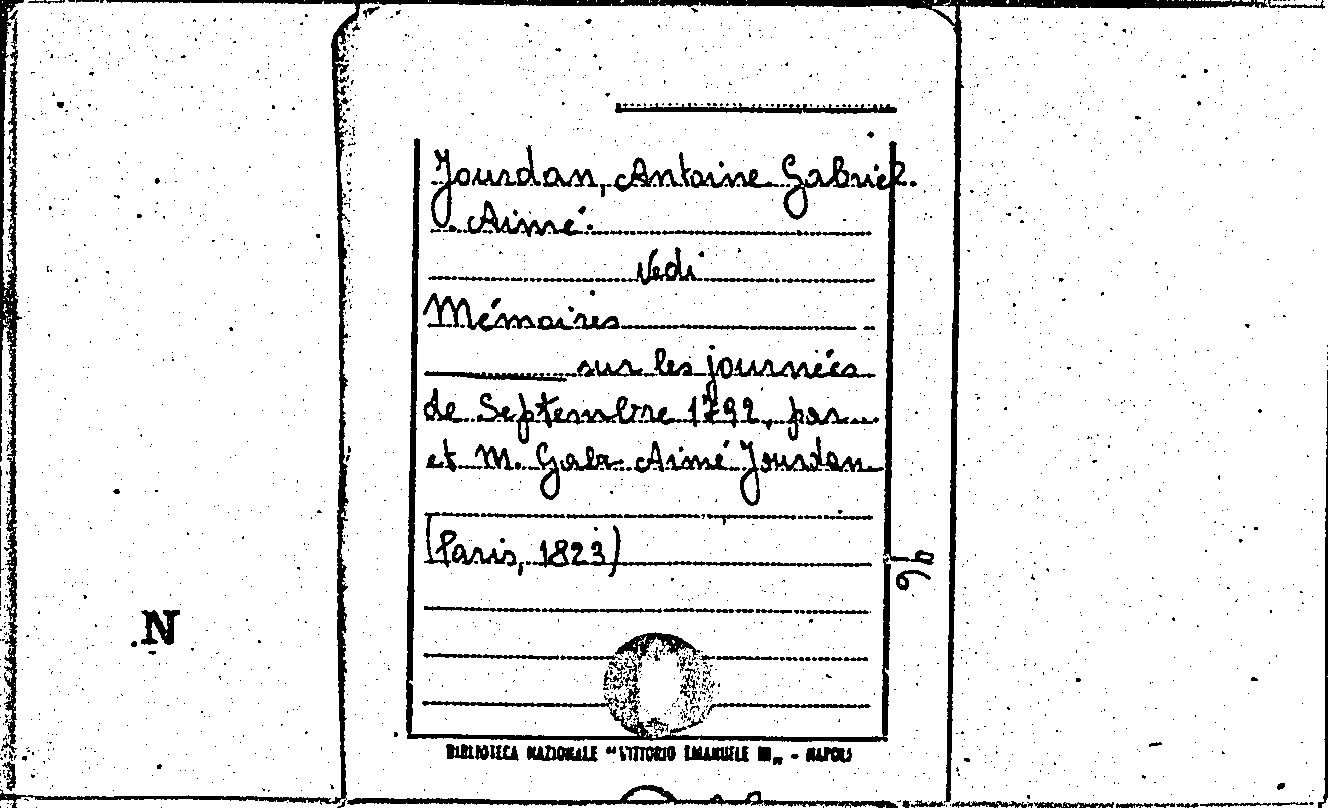 Jourdan, Antoine Gabriel.
Aimé.
Vedi
Mémoires
sur les journées
de Septembre 1792, par...
et M. Gabr. Aimé Jourdan
(Paris, 1823)
N
BIBLIOTECA NAZIONALE "VITTORIO EMANUELE III" - NAPOLI